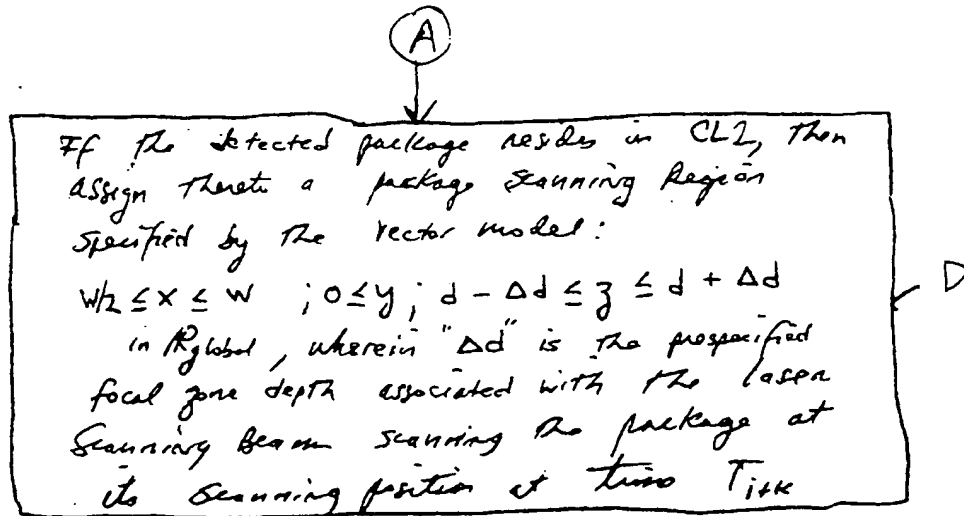 A
If the detected package resides in CL2, then
assign thereto a package scanning Region
specified by the vector model:
W/2 ≤ x ≤ W ; 0 ≤ y ; d - Δd ≤ z ≤ d + Δd
D
in Rglobal, wherein "Δd" is the prespecified
focal zone depth associated with the laser
Scanning Beam scanning the package at
its scanning position at time Ti+k